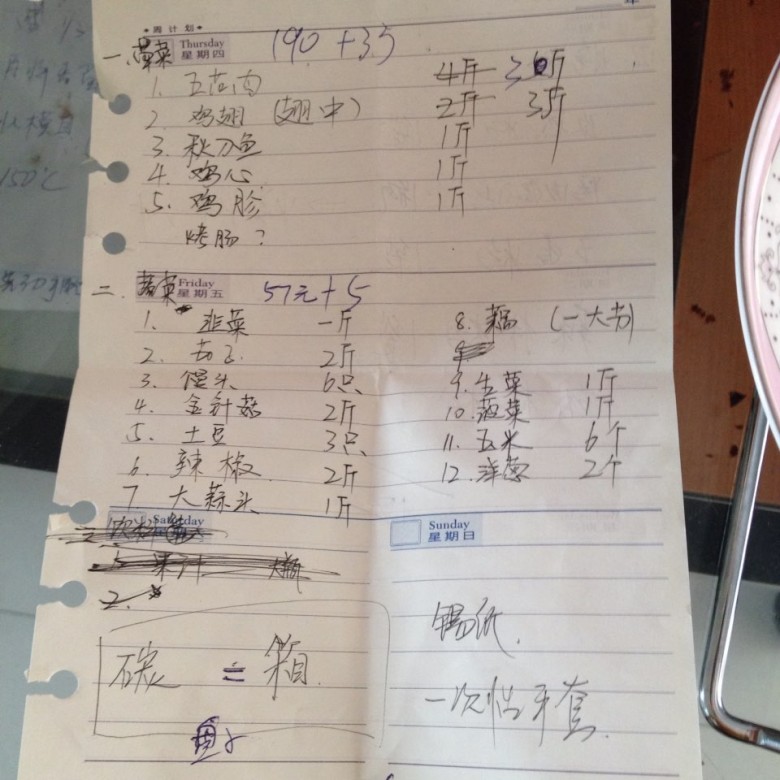 周计划
一、荤菜 Thursday 星期四 190 + 35
1. 五花肉 4斤 30斤
2 鸡翅 (翅中) 2斤 3斤
3. 秋刀鱼 1斤
4. 鸡心 1斤
5. 鸡胗 1斤
烤肠?
二、蔬菜 Friday 星期五 57元+5
1. 韭菜 一斤
2. 茄子 2斤
3. 馒头 6只
4. 金针菇 2斤
5. 土豆 3只
6. 辣椒 2斤
7 大蒜头 1斤
8. 藕 (一大节)
9. 生菜 1斤
10. 菠菜 1斤
11. 玉米 6个
12. 洋葱 2个
Saturday
果汁 大瓶
2.
碳 = 箱
Sunday
星期日
锡纸.
一次性手套.
150℃